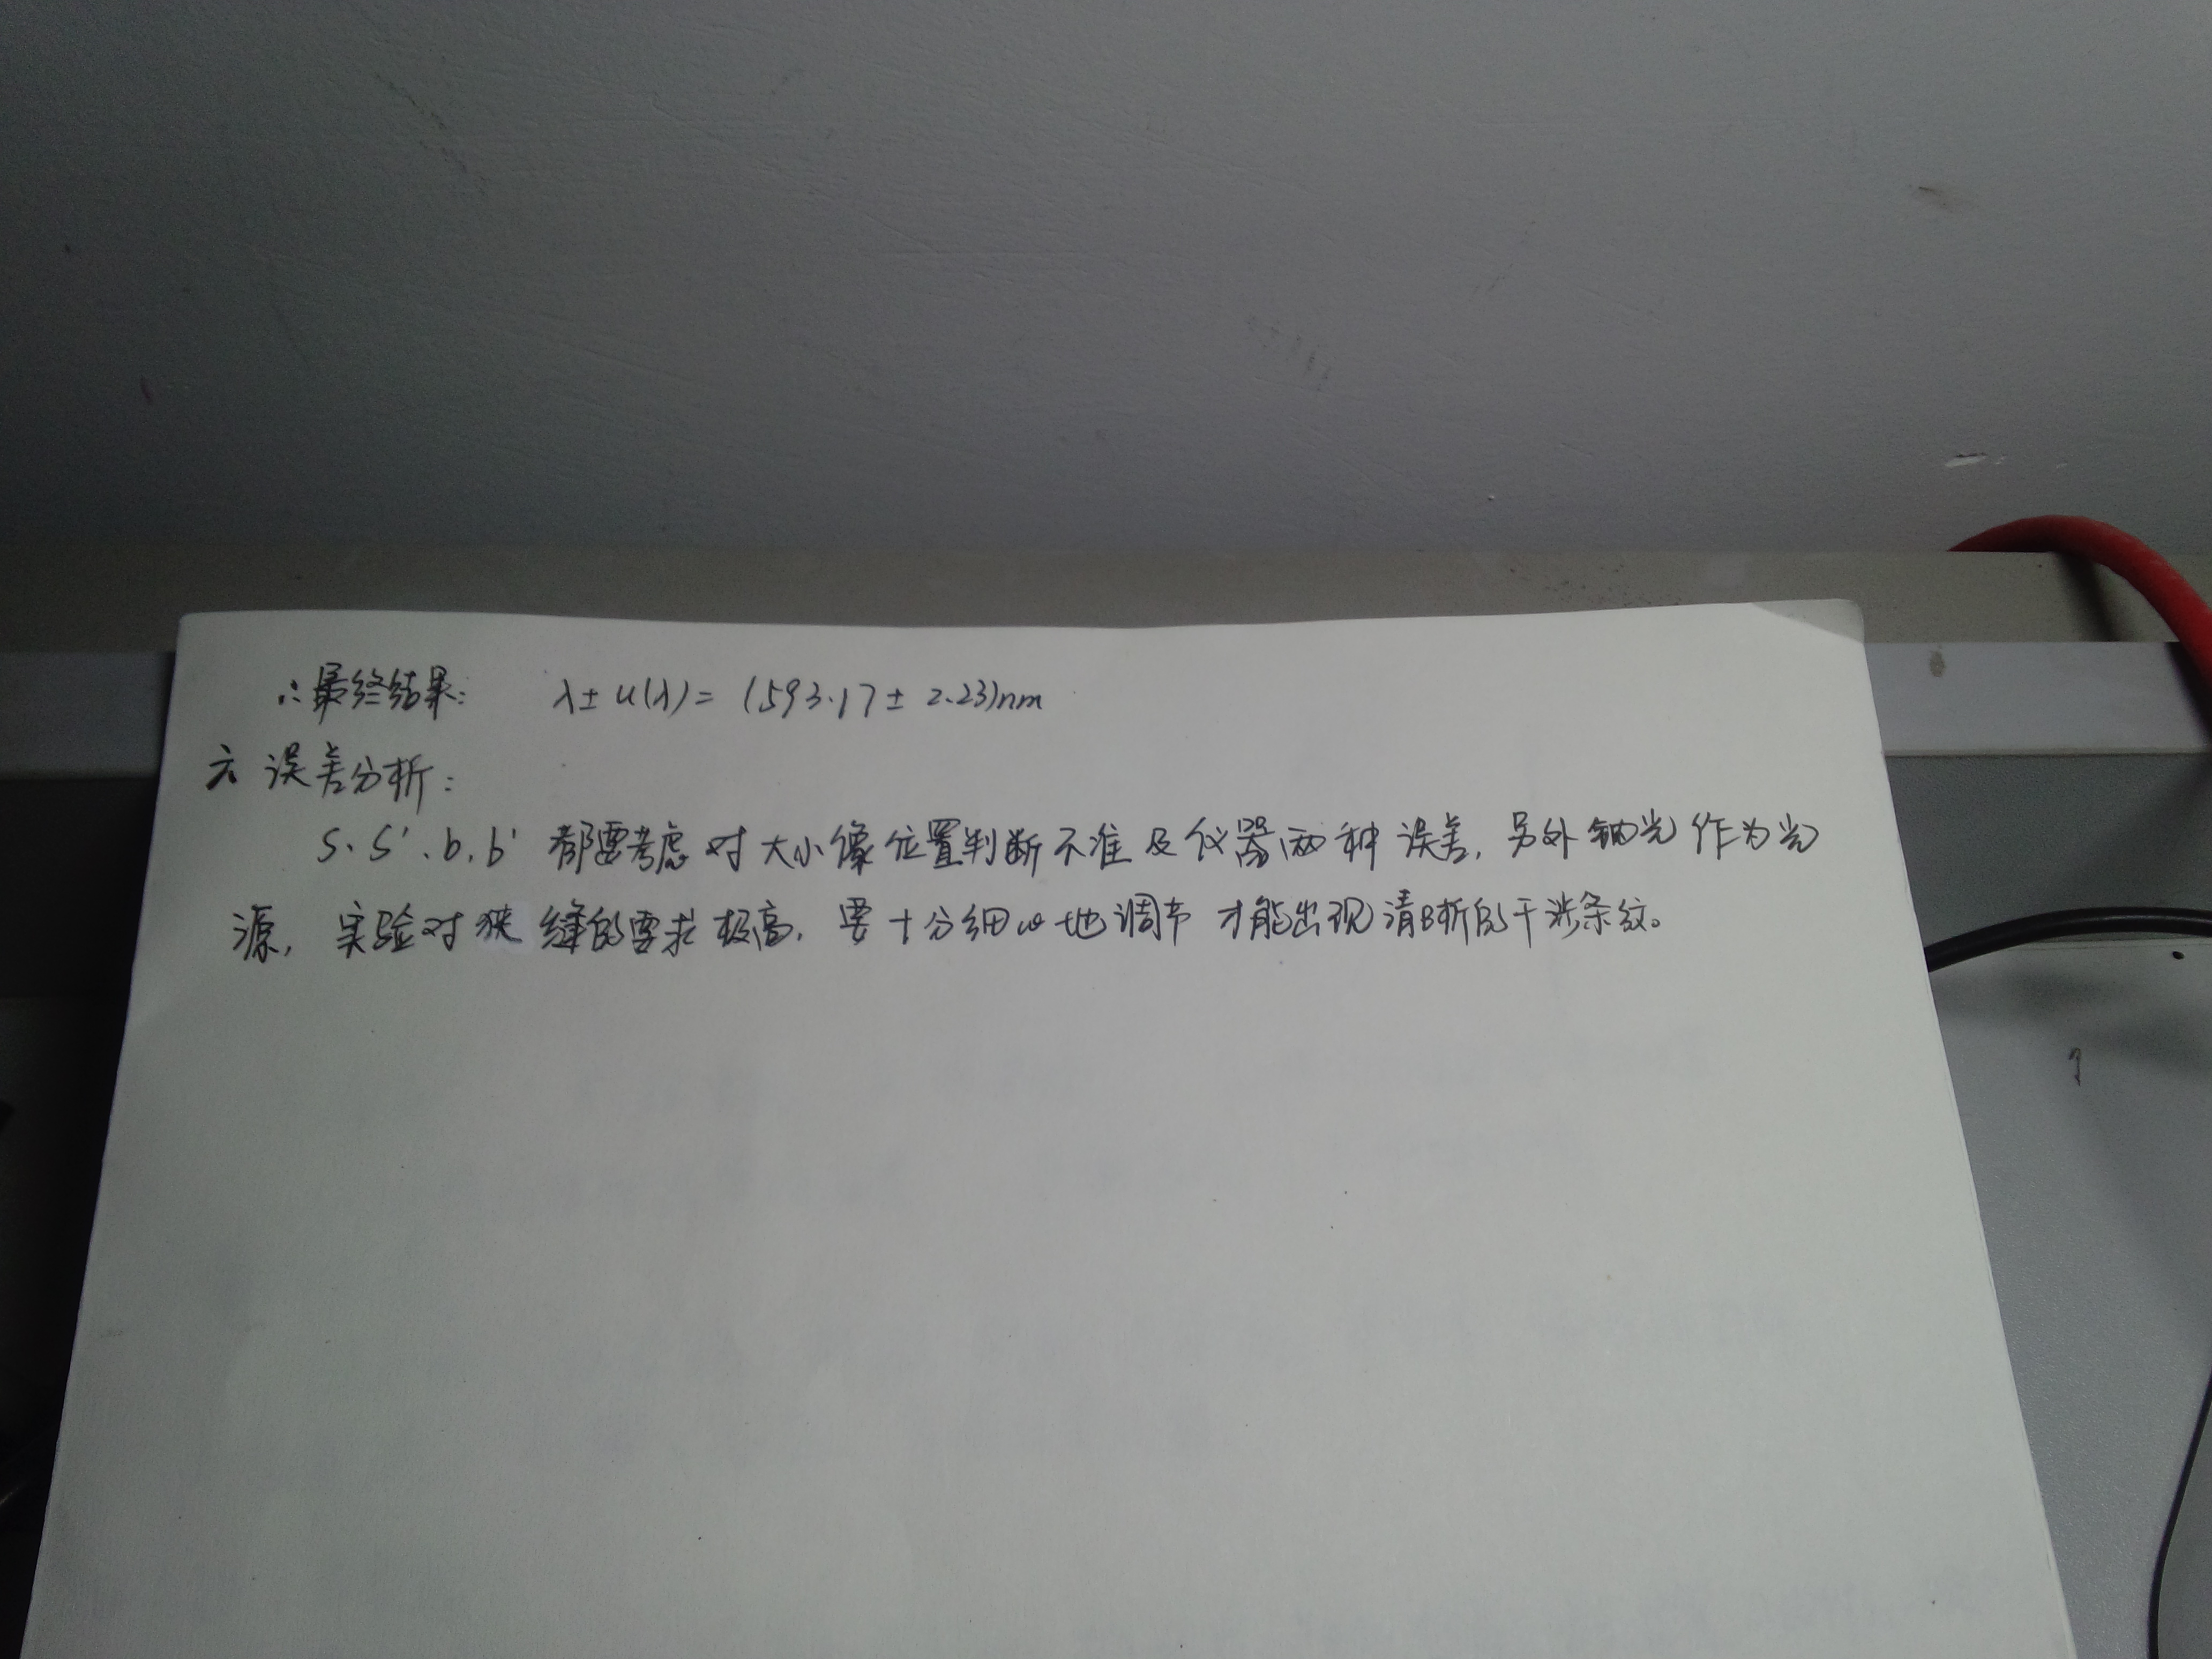 ∴最终结果: λ± u(λ)= (593.17± 2.23)nm
六 误差分析:
S、S'、b、b' 都要考虑对大小像位置判断不准及仪器两种误差, 另外钠光作为光
源, 实验对狭缝的要求极高, 要十分细心地调节才能出现清晰的干涉条纹。